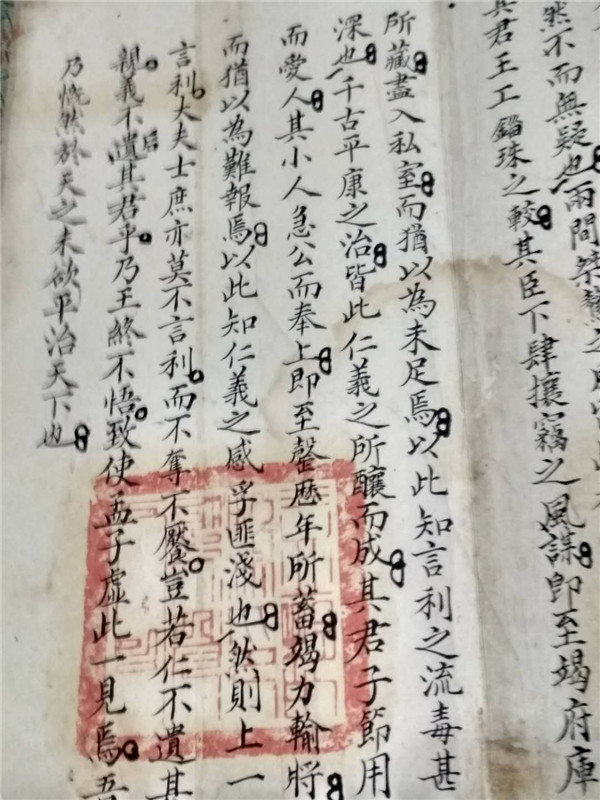 然不而無疑也兩間桀驁之
其君王工錙珠之較其臣下肆攘竊之風謀即至竭府庫
所藏盡入私室而猶以為未足焉以此知言利之流毒甚
深也千古平康之治皆此仁義之所釀而成其君子節用
而愛人其小人急公而奉上即至罄歷年所蓄竭力輸將
而猶以為難報焉以此知仁義之感孚匪淺也然則上一
言利大夫士庶亦莫不言利而不奪不饜豈若仁不遺其
親義不後遺其君乎乃王終不悟致使孟子虛此一見焉吾
乃慨然於天之未欲平治天下也